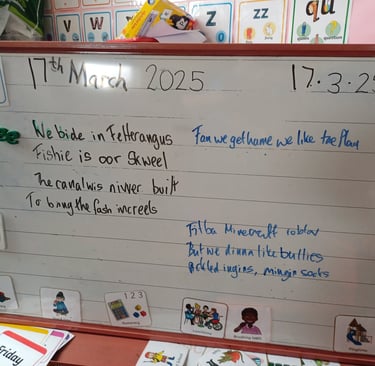 v
w
y
z
zz
qu
17th March 2025
17.3.25
We bide in Fetterangus
Fishie is oor Skweel
The canal wis nivver built
To bring the fash in creels
Fan we get hame we like tae play
Fitba Minecraft roblox
But we dinna like bullies
pickled ingins, mingin socks
1 2 3
Friday